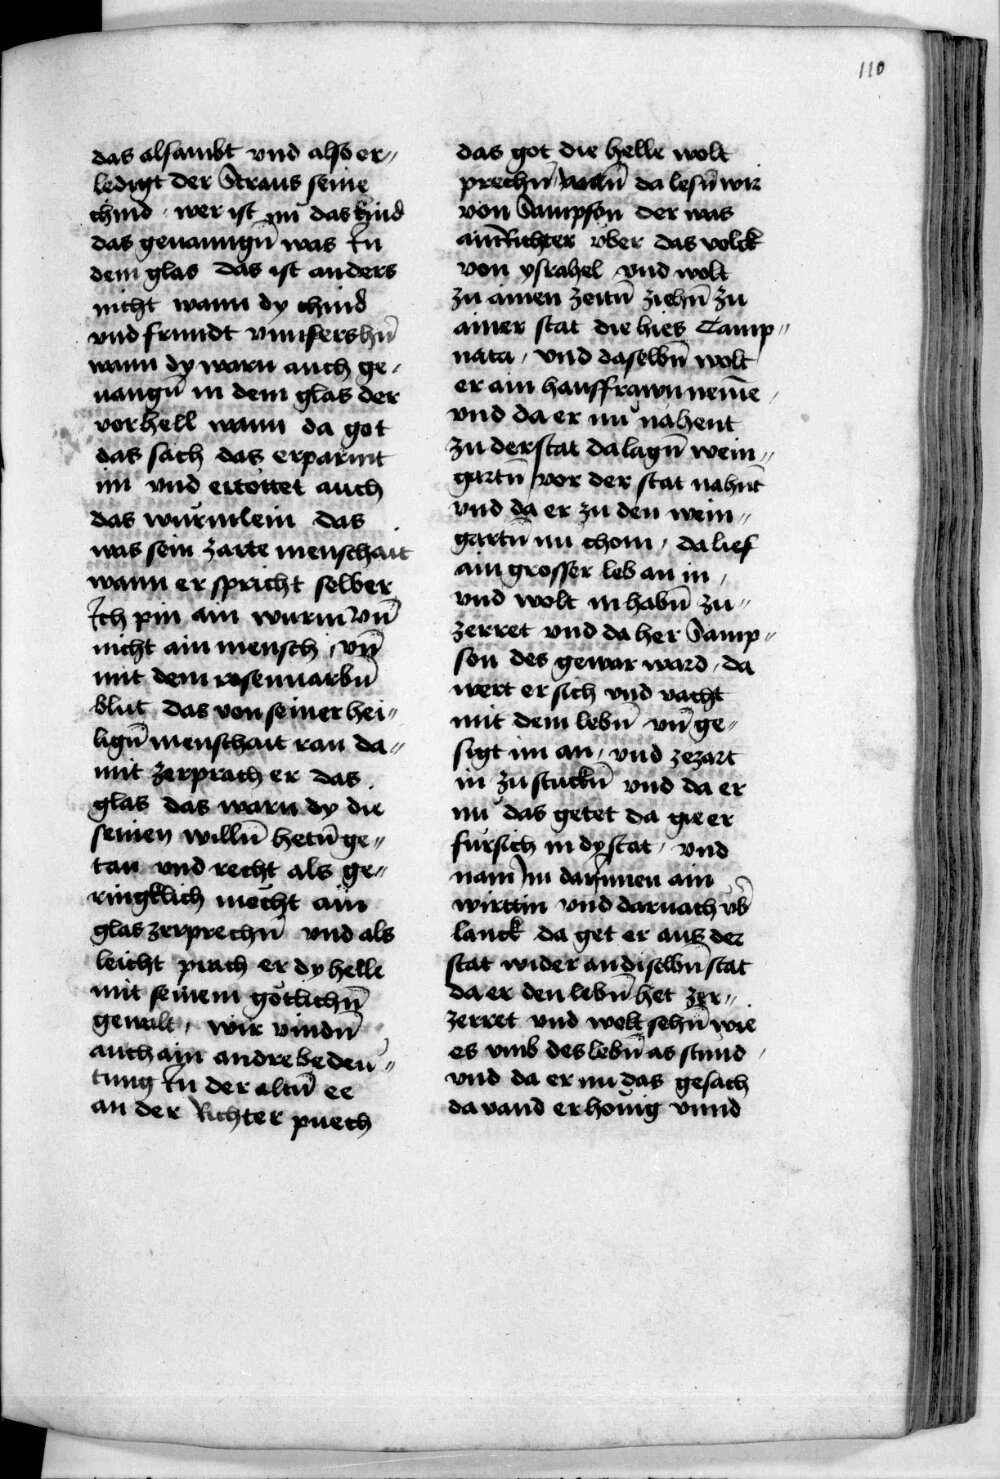 110
das alsambt vnd also er〃
ledigt der Straus seine
chind · wer ist nů das kind
das geuanngn̄ was In
dem glas das ist anders
nicht wann dy chind
vnd frundt vnnsers hn̄
wann dy warn auch ge〃
uangn̄ in dem glas der
vorhell wann da got
das sach das erparmt
im vnd ertöttet auch
das würmlein das
was sein zarte menschait
wann er spricht selber
Ich pin ain wurm vn̄
nicht ain mensch , vn̄
mit dem rosenuarbn̄
blut das von seiner hei〃
lign̄ menschait ran da〃
mit zerprach er das
glas das warn dy die
seinen willn̄ hetn̄ ge〃
tan vnd recht als ge〃
ringklich mecht ain
glas zerprechn̄ vnd als
leicht prach er dy helle
mit seinem götlichn̄
gewalt , wir vindn̄
auch ain andre bedeu〃
tung In der altn̄ ee
an der Richter puech
das got die helle wolt
prechn̄ da lesn̄ wir
von Sampson der was
ain Richter vber das volck
von ysrahel vnd wolt
zu ainen zeitn̄ ziehn̄ zu
ainer stat die hies Tamp〃
nata , vnd daselbn̄ wolt
er ain hausffrawn nem̄e
vnd da er nů nahent
zu der stat da lagn̄ wein〃
gartn̄ vor der stat nahnt
vnd da er zu den wein〃
gartn̄ nu chom , da lief
ain grosser leb an in ,
vnd wolt in habn̄ zu〃
zerret vnd da her Samp〃
son des gewar ward , da
wert er sich vnd vacht
mit dem lebn̄ vn̄ ge〃
sigt im an , vnd zezart
in zu stuckn̄ vnd da er
nů das getet da gie er
fürsich in dy stat , vnd
nam Im darinnen ain
wirttin vnd darnach vb̄
lanck da get er aus der
stat wider an diselbn̄ stat
da er den lebn̄ het zer〃
zerret vnd wolt sehn̄ wie
es vmb des lebn̄ as stund
vnd da er nu das gesach
da vand er honig vnnd